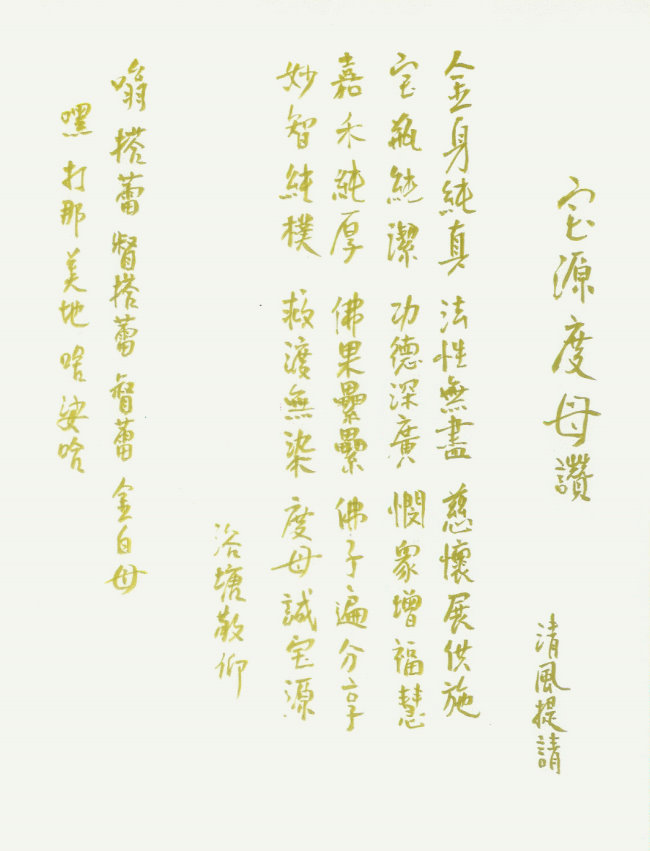 宝源度母讚
清風提請
金身純真 法性無盡 慈懷展供施
宝瓶純潔 功德深廣 憫眾增福慧
嘉禾純厚 佛果纍纍 佛子遍分享
妙智純樸 救渡無染 度母誠宝源
浴塘敬仰
嗡 搭蕾 督搭蕾 督蕾 金白母
嘿 打那 美地 啥 娑哈